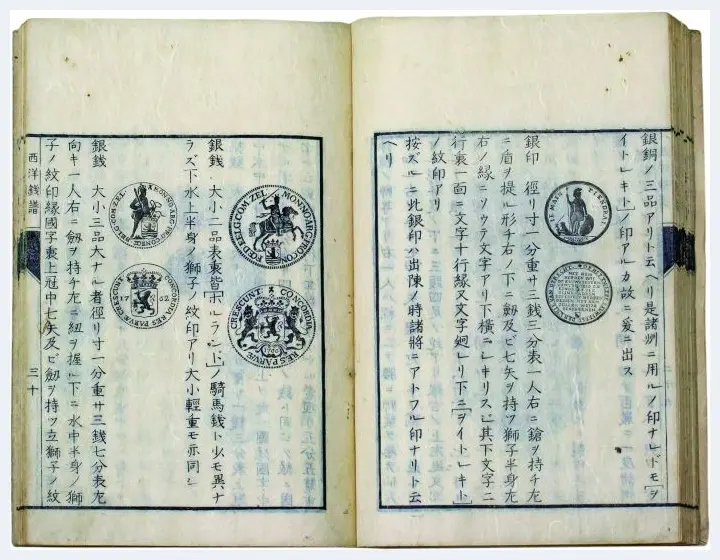 銀銅ノ三品アリト云ヘリ是諸洲ニ用ルノ印ナレドモ「ヲ
イトレキト」ノ印アルカ故ニ爰ニ出ス
銀印 徑リ寸一分重サ三銭三分表一人右ニ鎗ヲ持チ左
ニ盾ヲ提ル形チ右ノ下ニ劔及ビ七矢ヲ持ツ獅子半身左
右ノ縁ニソウテ文字アリ下横ニ「レキリスヒ」其下文字二
行裏一面ニ文字十行縁又文字廻レリ下ニ「ヲイトレキト」
ノ紋印アリ
按ズルニ此銀印ハ出陳ノ時諸將ニアトフル印ナリト云
ヘリ
MONNO ARG PRO CONFOED BELG COM ZEL
CONCORDIA RES PARVÆ CRESCUNT
銀銭 大小二品表裏皆「ホルランド」ノ騎馬銭ト少モ異ナ
ラズ下水上半身ノ獅子ノ紋印アリ大小輕重モ亦同シ
CONCORDIA RES PARVÆ CRESCUNT
銀銭 大小三品大ナル者徑リ寸一分重サ三銭七分表左
向キ一人右ニ劔ヲ持チ左ニ紐ヲ握ル下ニ水中半身ノ獅
子ノ紋印縁國字裏上冠中七矢及ビ劔ヲ持ツ立獅子ノ紋
西洋銭譜
三十